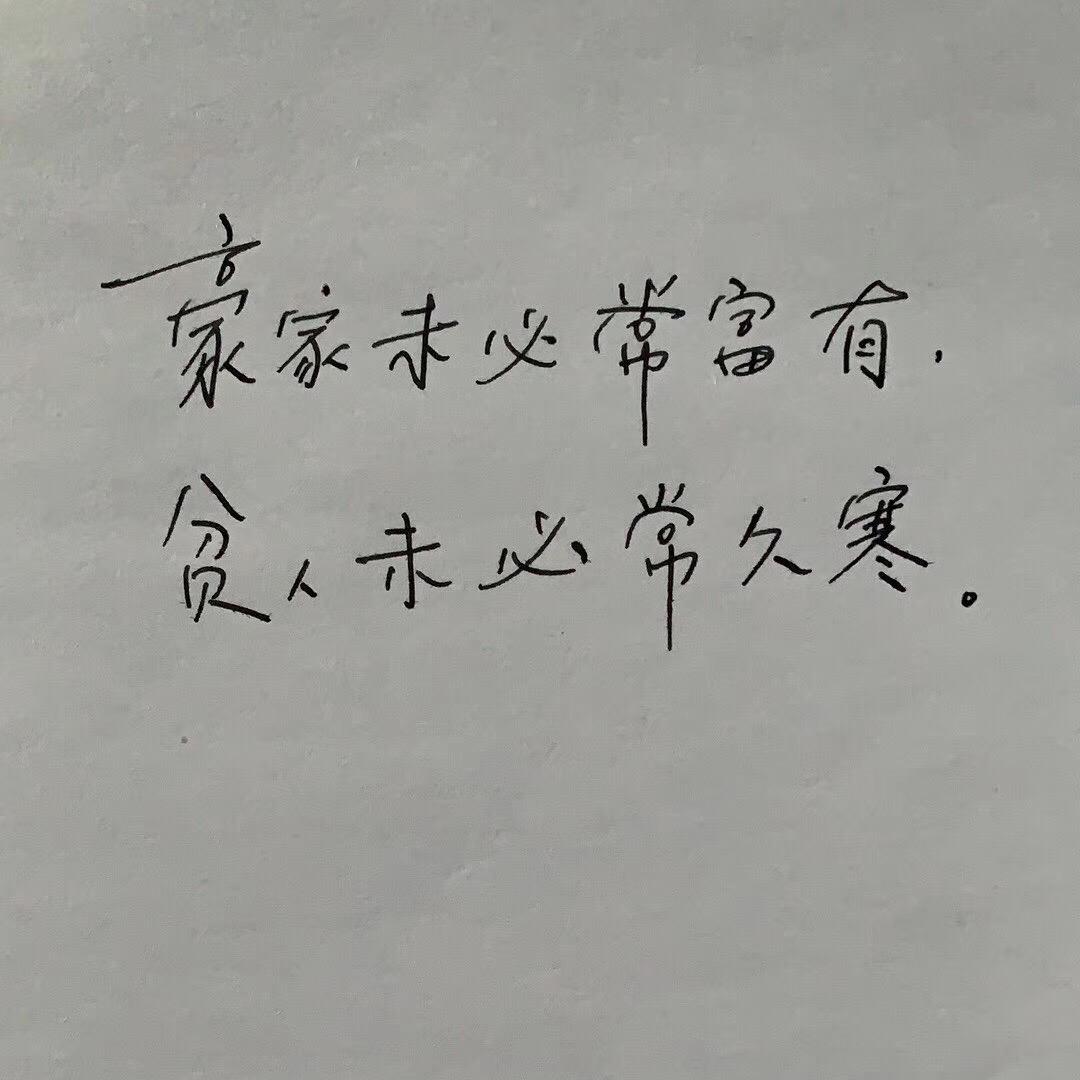 豪家未必常富有，
贫人未必常久寒。